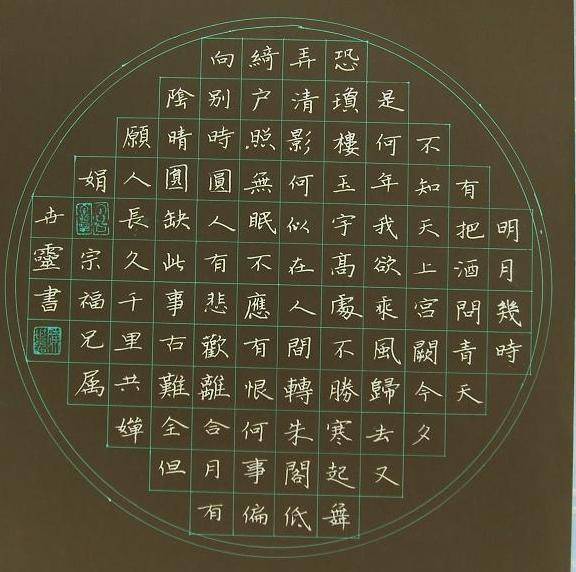 明月幾時
有把酒問青天
不知天上宮闕今夕
是何年我欲乘風歸去又
恐瓊樓玉宇高處不勝寒起舞
弄清影何似在人間轉朱閣低
綺户照無眠不應有恨何事偏
向別時圓人有悲歡離合月有
陰晴圓缺此事古難全但
願人長久千里共嬋
娟宗福兄属
靈書